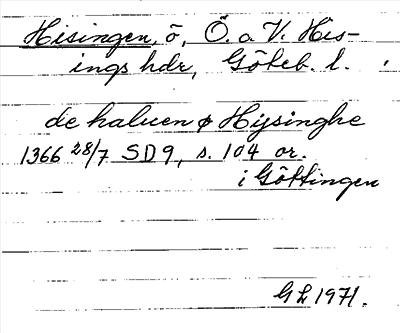 Hisingen, ö, Ö. o V. His-
ings hdr, Göteb. l.
de haluen ø Hijsinghe
1366 28/7 SD9, s. 104 or.
i Göttingen
GL 1971.